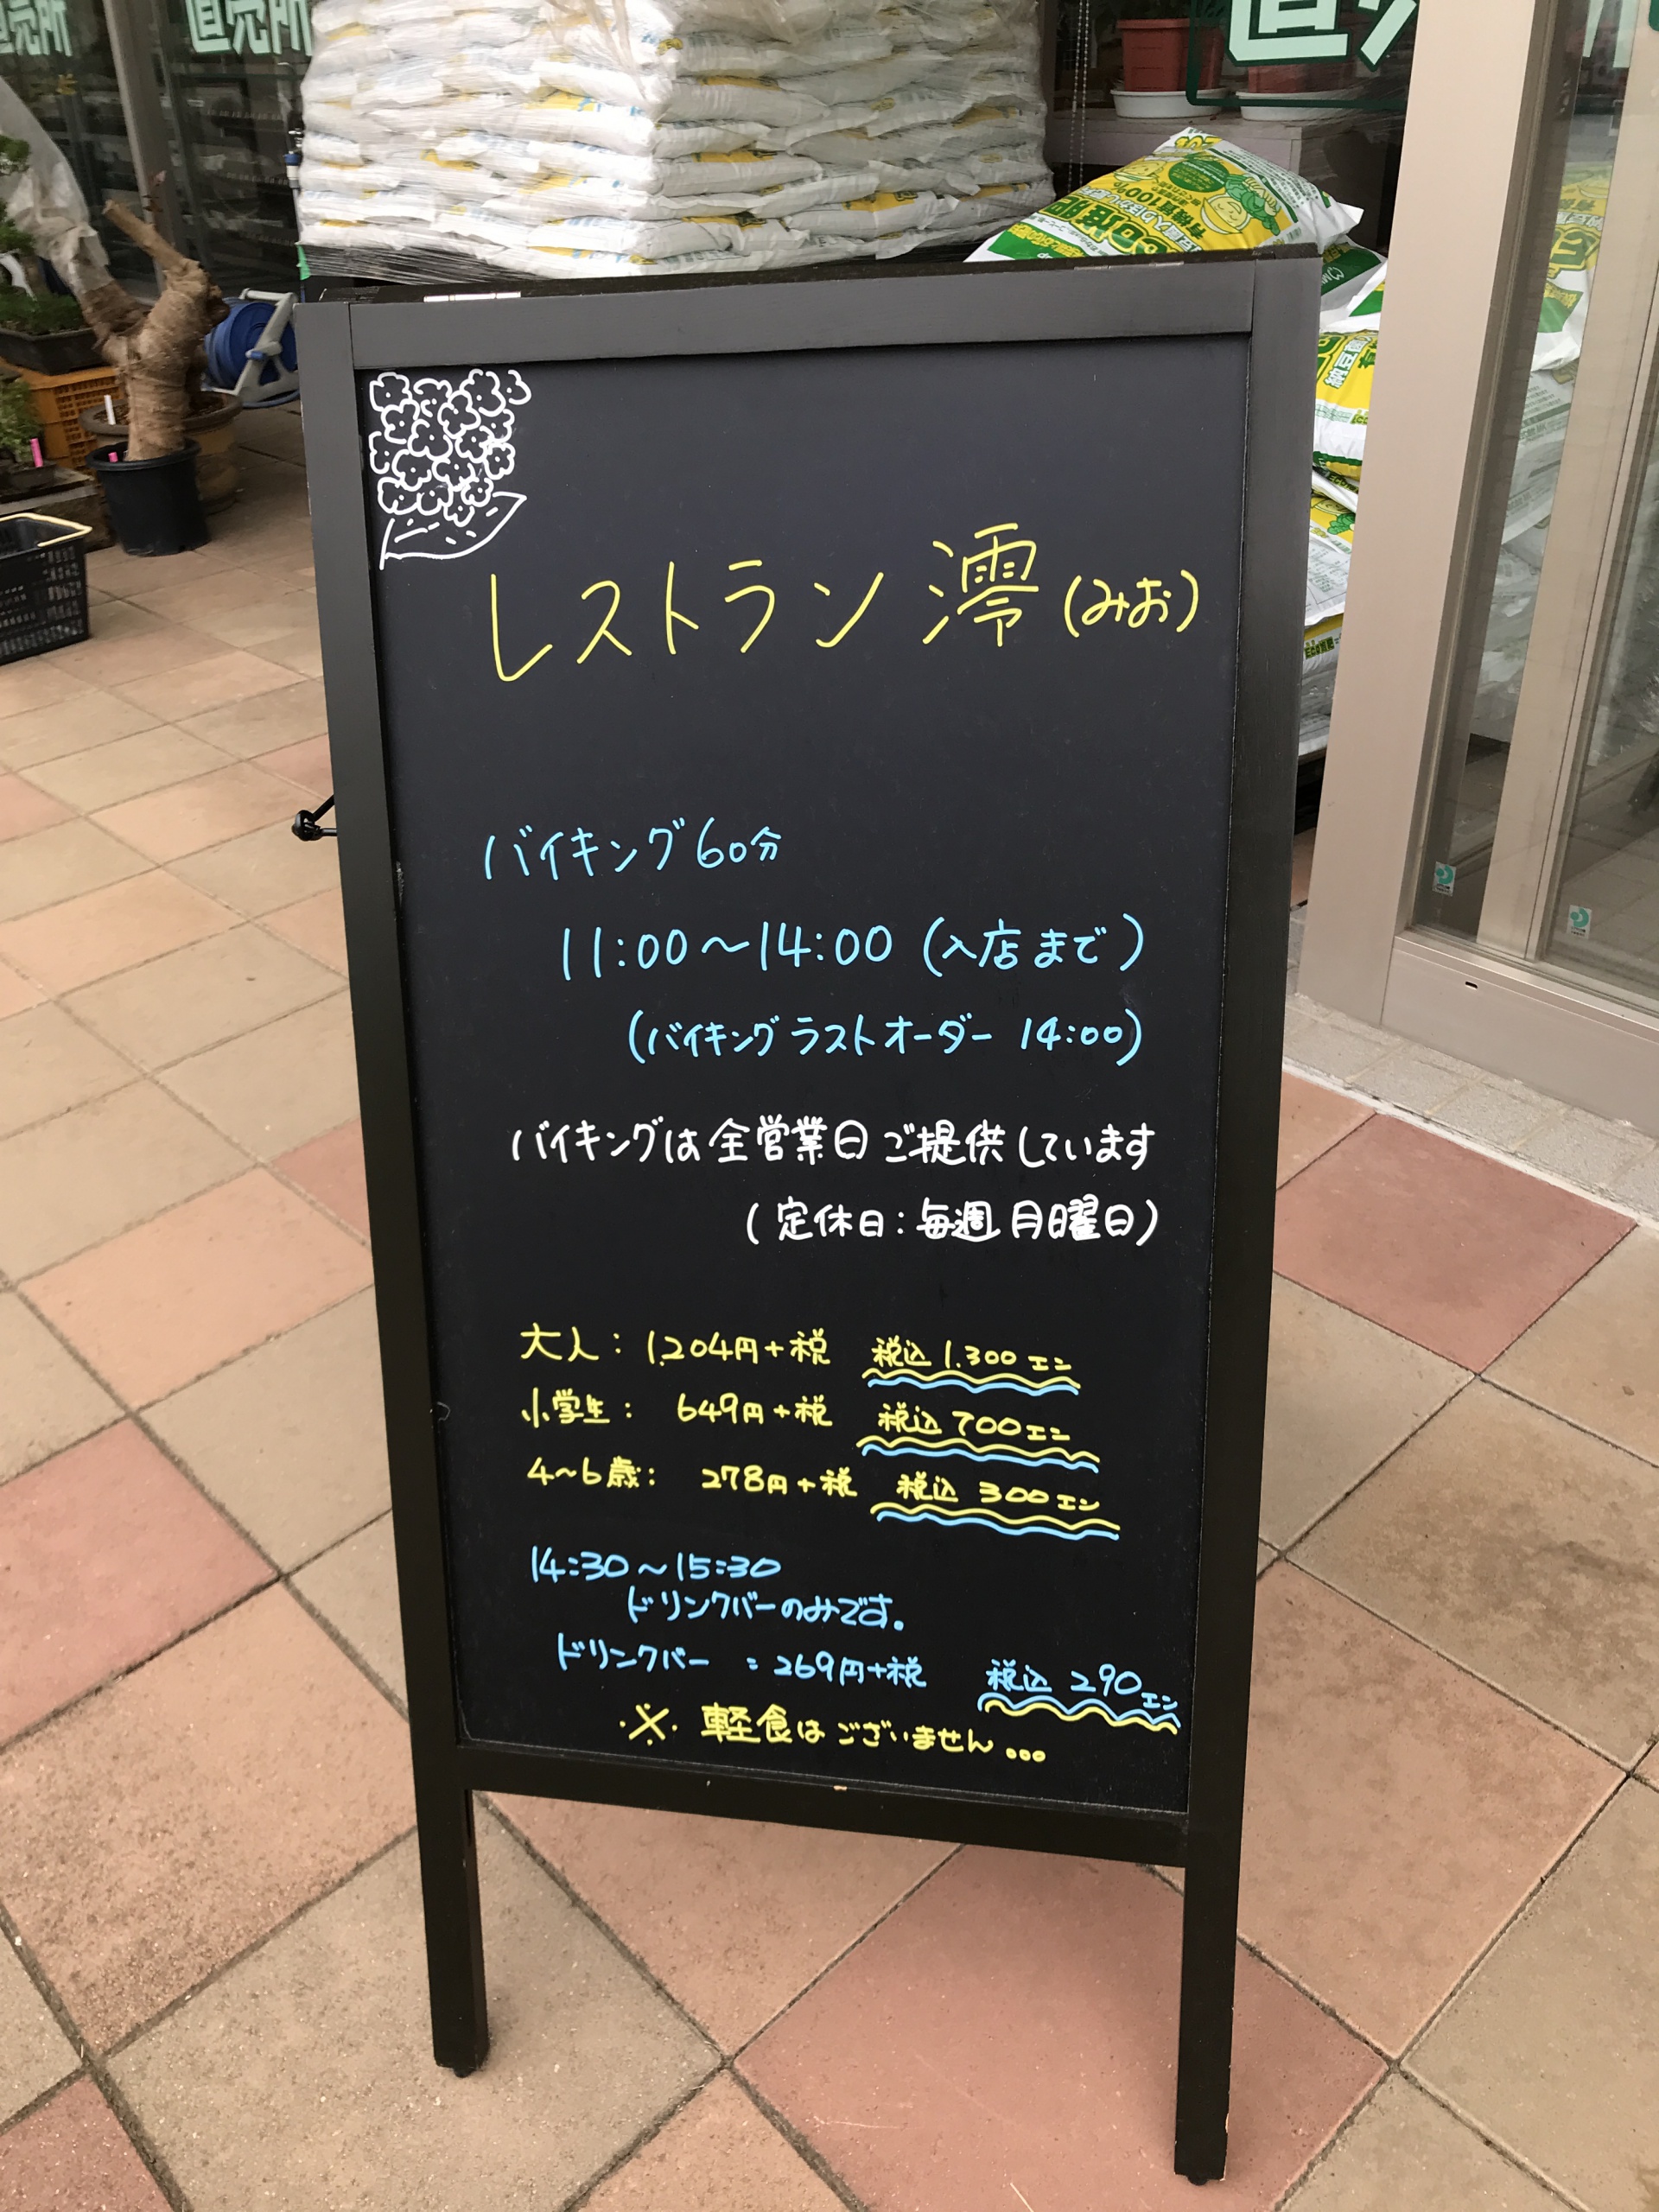 直売所
直売所
有機質100%
レストラン 澪 (みお)
バイキング 60分
11:00〜14:00 (入店まで)
(バイキング ラストオーダー 14:00)
バイキングは全営業日ご提供しています
(定休日:毎週月曜日)
大人: 1,204円+税 税込 1.300エン
小学生: 649円+税 税込 700エン
4〜6歳: 278円+税 税込 300エン
14:30〜15:30
ドリンクバーのみです。
ドリンクバー : 269円+税 税込 290エン
※ 軽食はございません...